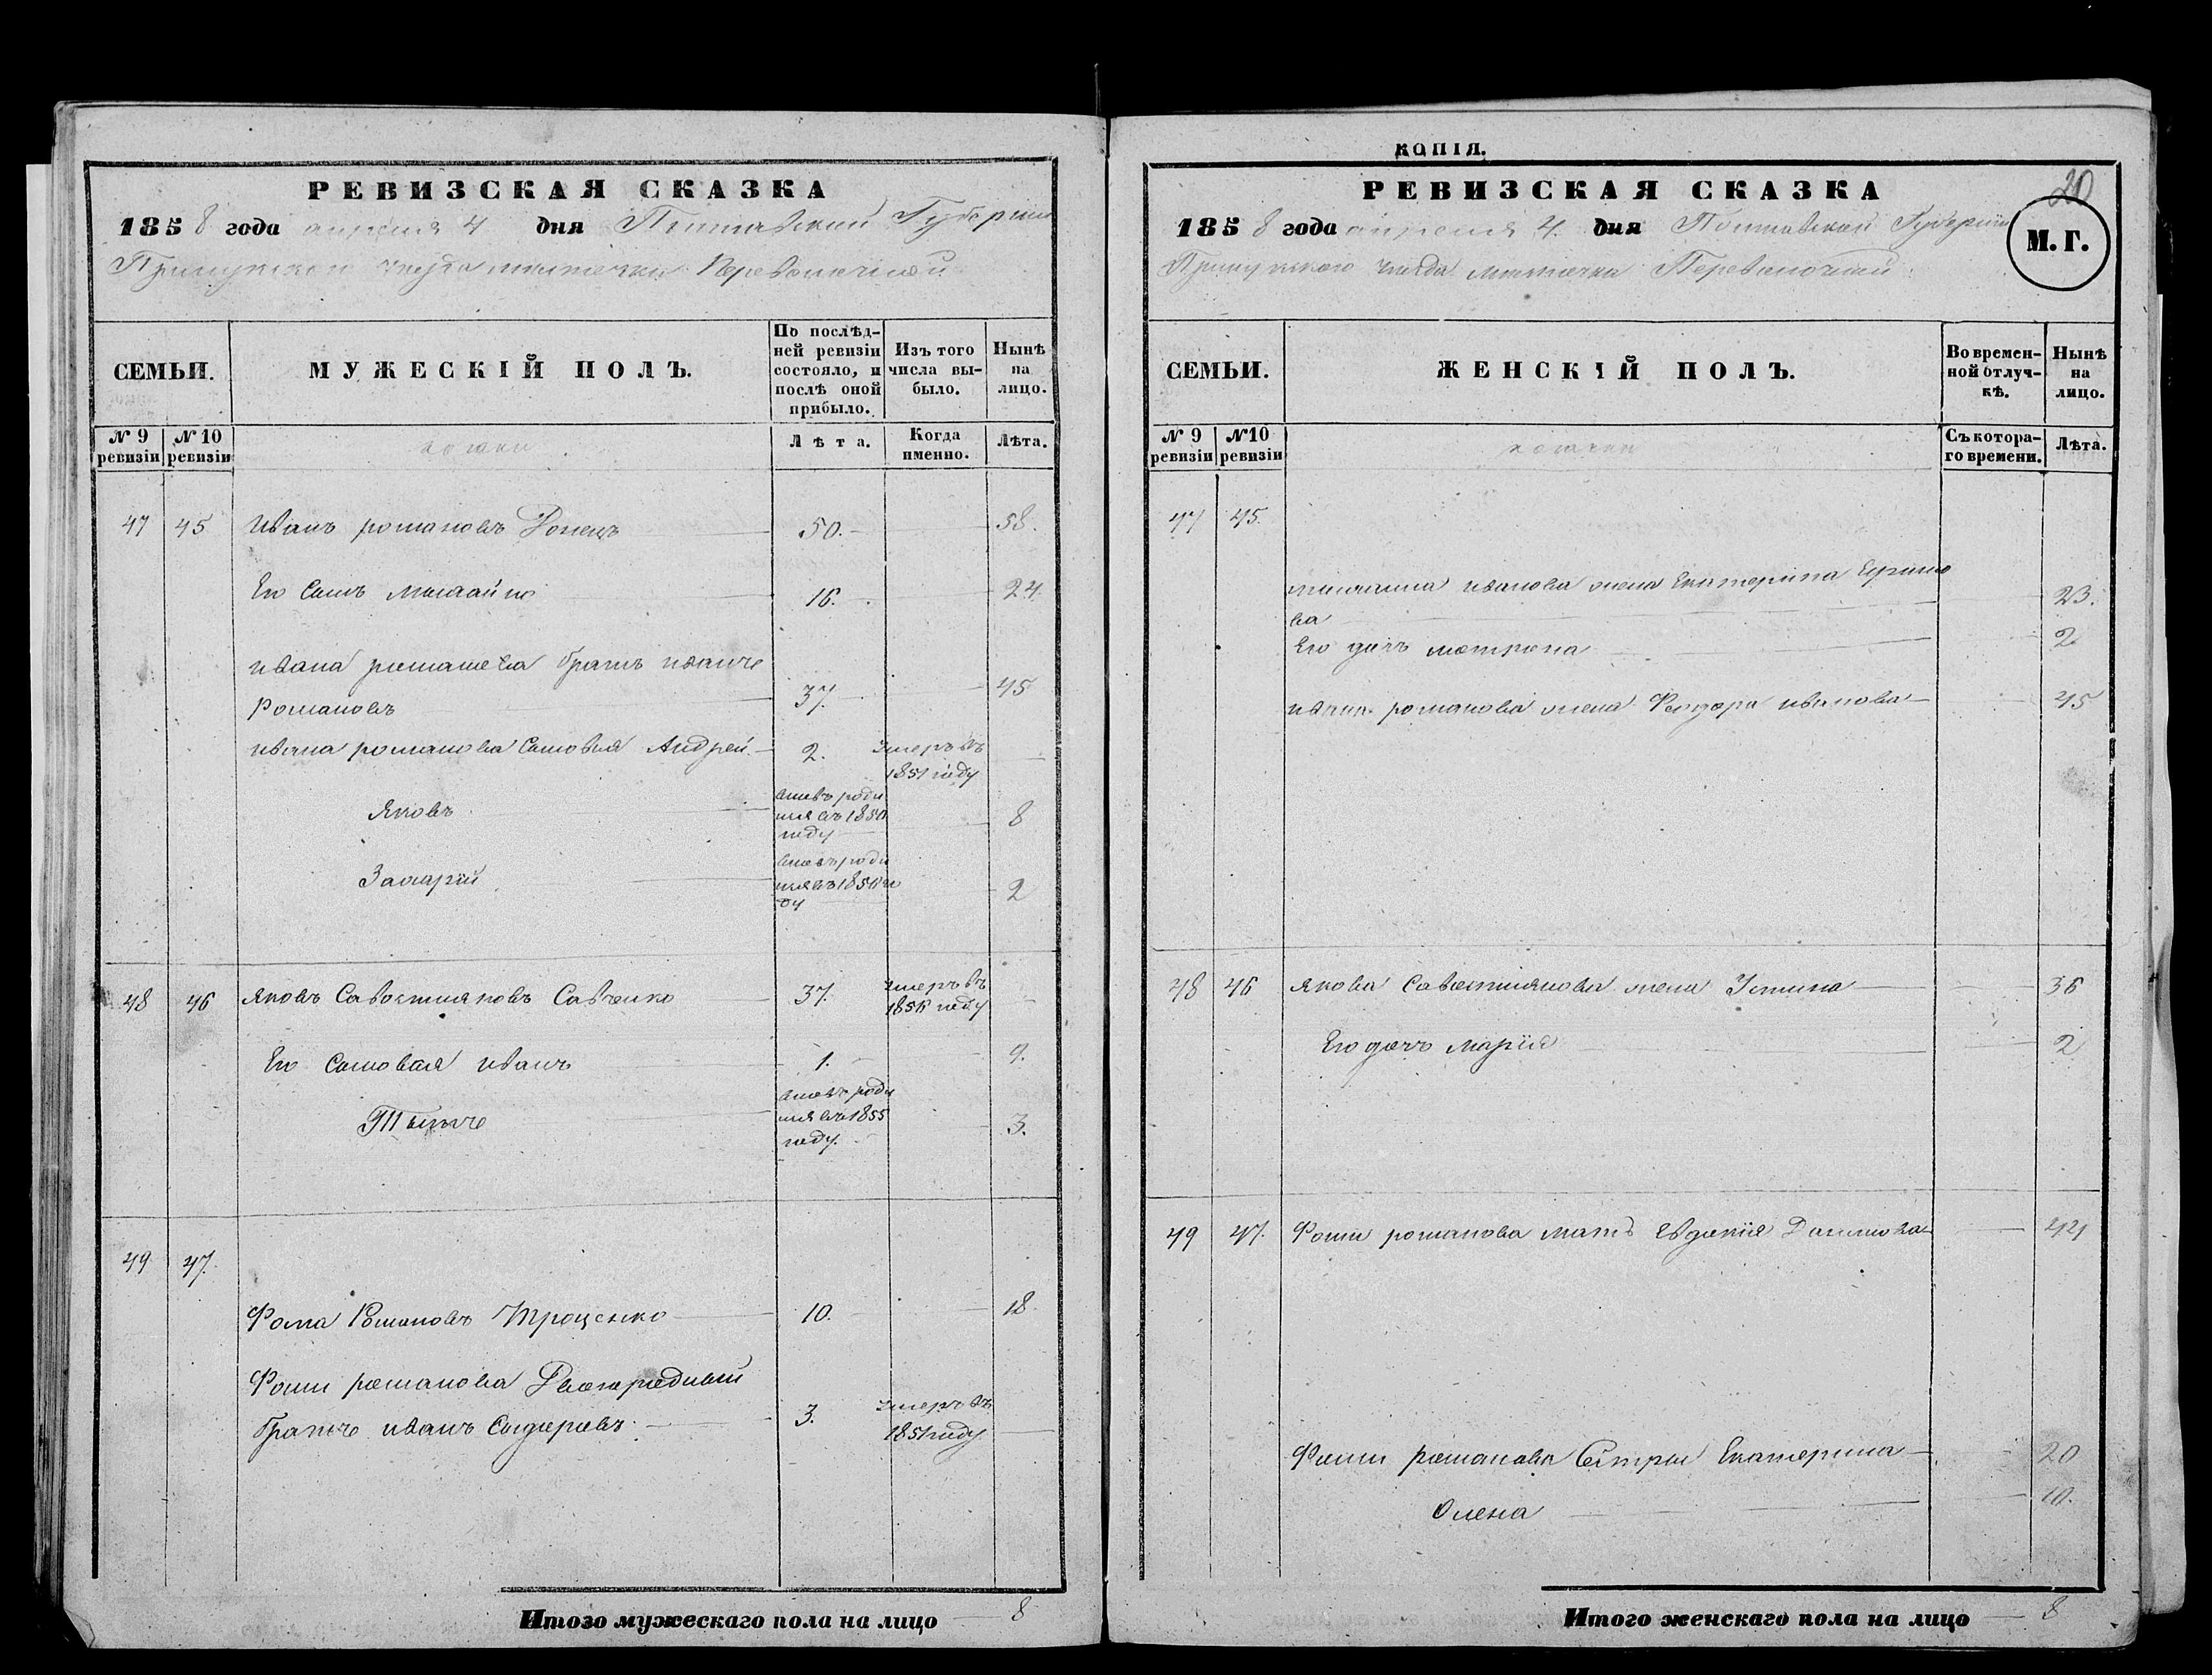 РЕВИЗСКАЯ СКАЗКА
1858 года апреля 4 дня Полтавской Губернии
Прилукского уезда местечка Переволочной
СЕМЬИ.
МУЖЕСКІЙ ПОЛЪ.
По послѣд-
ней ревизіи
состояло, и
послѣ оной
прибыло.
Изъ того
числа вы-
было.
Нынѣ
на
лицо.
№ 9
ревизіи
№ 10
ревизіи
Лѣта.
Когда
именно.
Лѣта.
47 45 Иванъ романовъ Донецъ 50. 58.
Его Сынъ Михайло 16. 24.
ивана романова братъ иванъ
Романовъ 37. 45
ивана романова Сыновья Андрей 2. умеръ въ
1851 году
Яковъ
8
Захарій
2
48 46 Яковъ Савостияновъ Савченко 37. умеръ въ
году
Его Сыновья иванъ 1. 9.
роди
лся въ 1855
году. 3.
49 47.
Фома Романовъ Троценко 10. 18
Фомы романова Двоюродный
братъ иванъ Сидоровъ 3. умеръ въ
1851 году
Итого мужескаго пола на лицо 8
КОПІЯ.
20
РЕВИЗСКАЯ СКАЗКА
1858 года апреля 4. дня Полтавской Губерніи
Прилукского уезда местечка Переволочной
М. Г.
СЕМЬИ.
ЖЕНСКІЙ ПОЛЪ.
Во времен-
ной отлуч-
кѣ.
Нынѣ
на
лицо.
№ 9
ревизіи
№10
ревизіи
Съ котора-
го времени.
Лѣта.
47 45.
михаила иванова жена Екатерина Ефимо
ва 23.
Его дочь мотрона 2
ивана романова жена Феодора иванова 45
48 46 Якова Савостиянова жена Устина 36
Его дочь Марія 2
49 47. Фомы романова мать Евдокія Данилова 44
Фомы романова Сестры Екатерина 20
Олена 10.
Итого женскаго пола на лицо 8